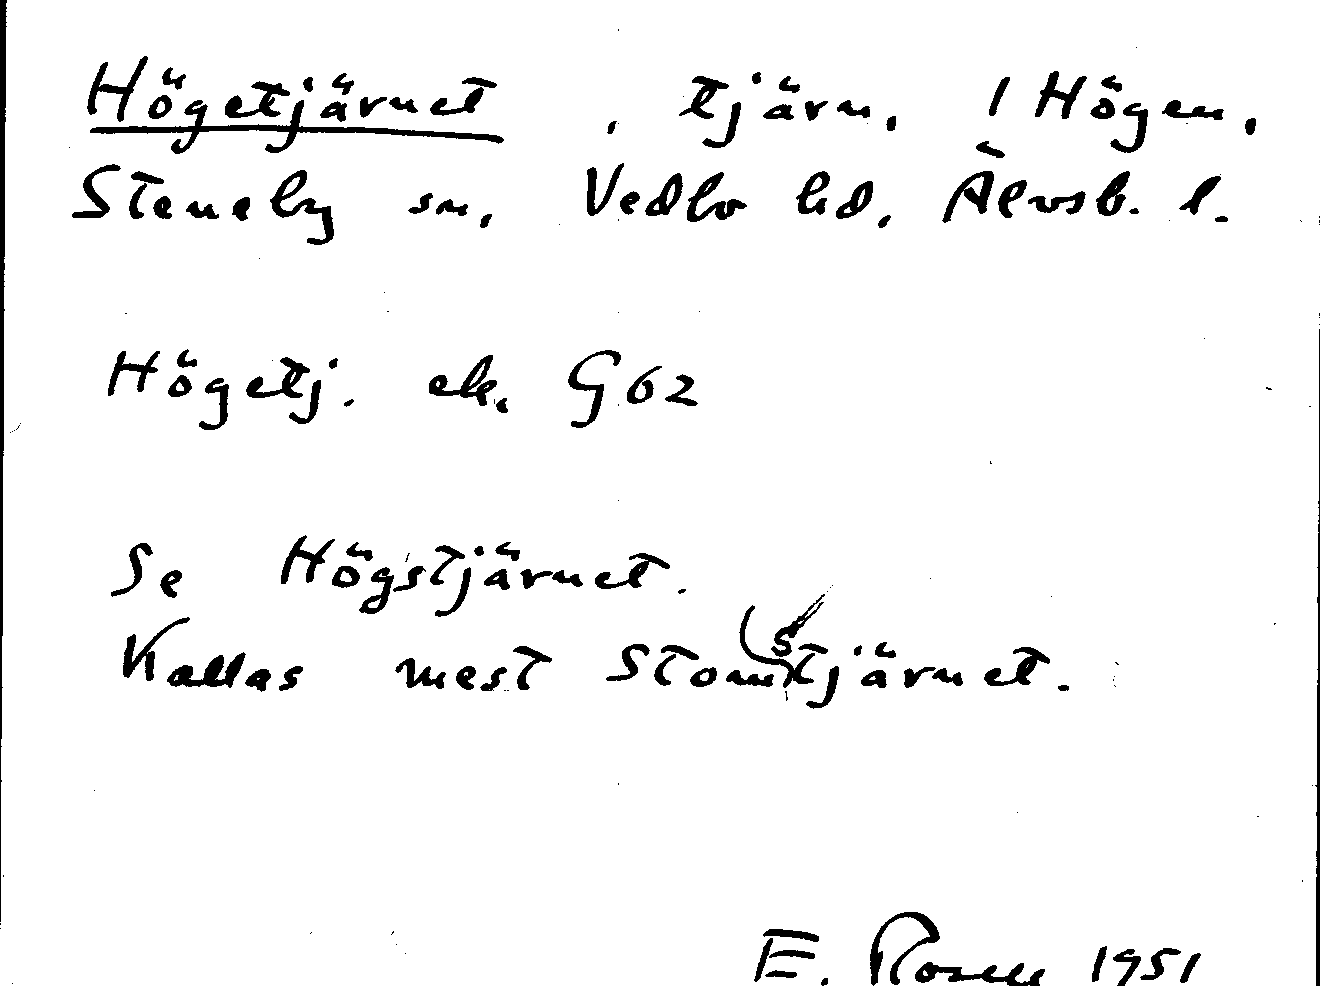 Högetjärnet, tjärn, 1 Högen,
Steneby sn, Vedbo hd, Älvsb. l.
Högetj. ek. G62
Se Högstjärnet.
Kallas mest Stomstjärnet.
E. Rosell 1951